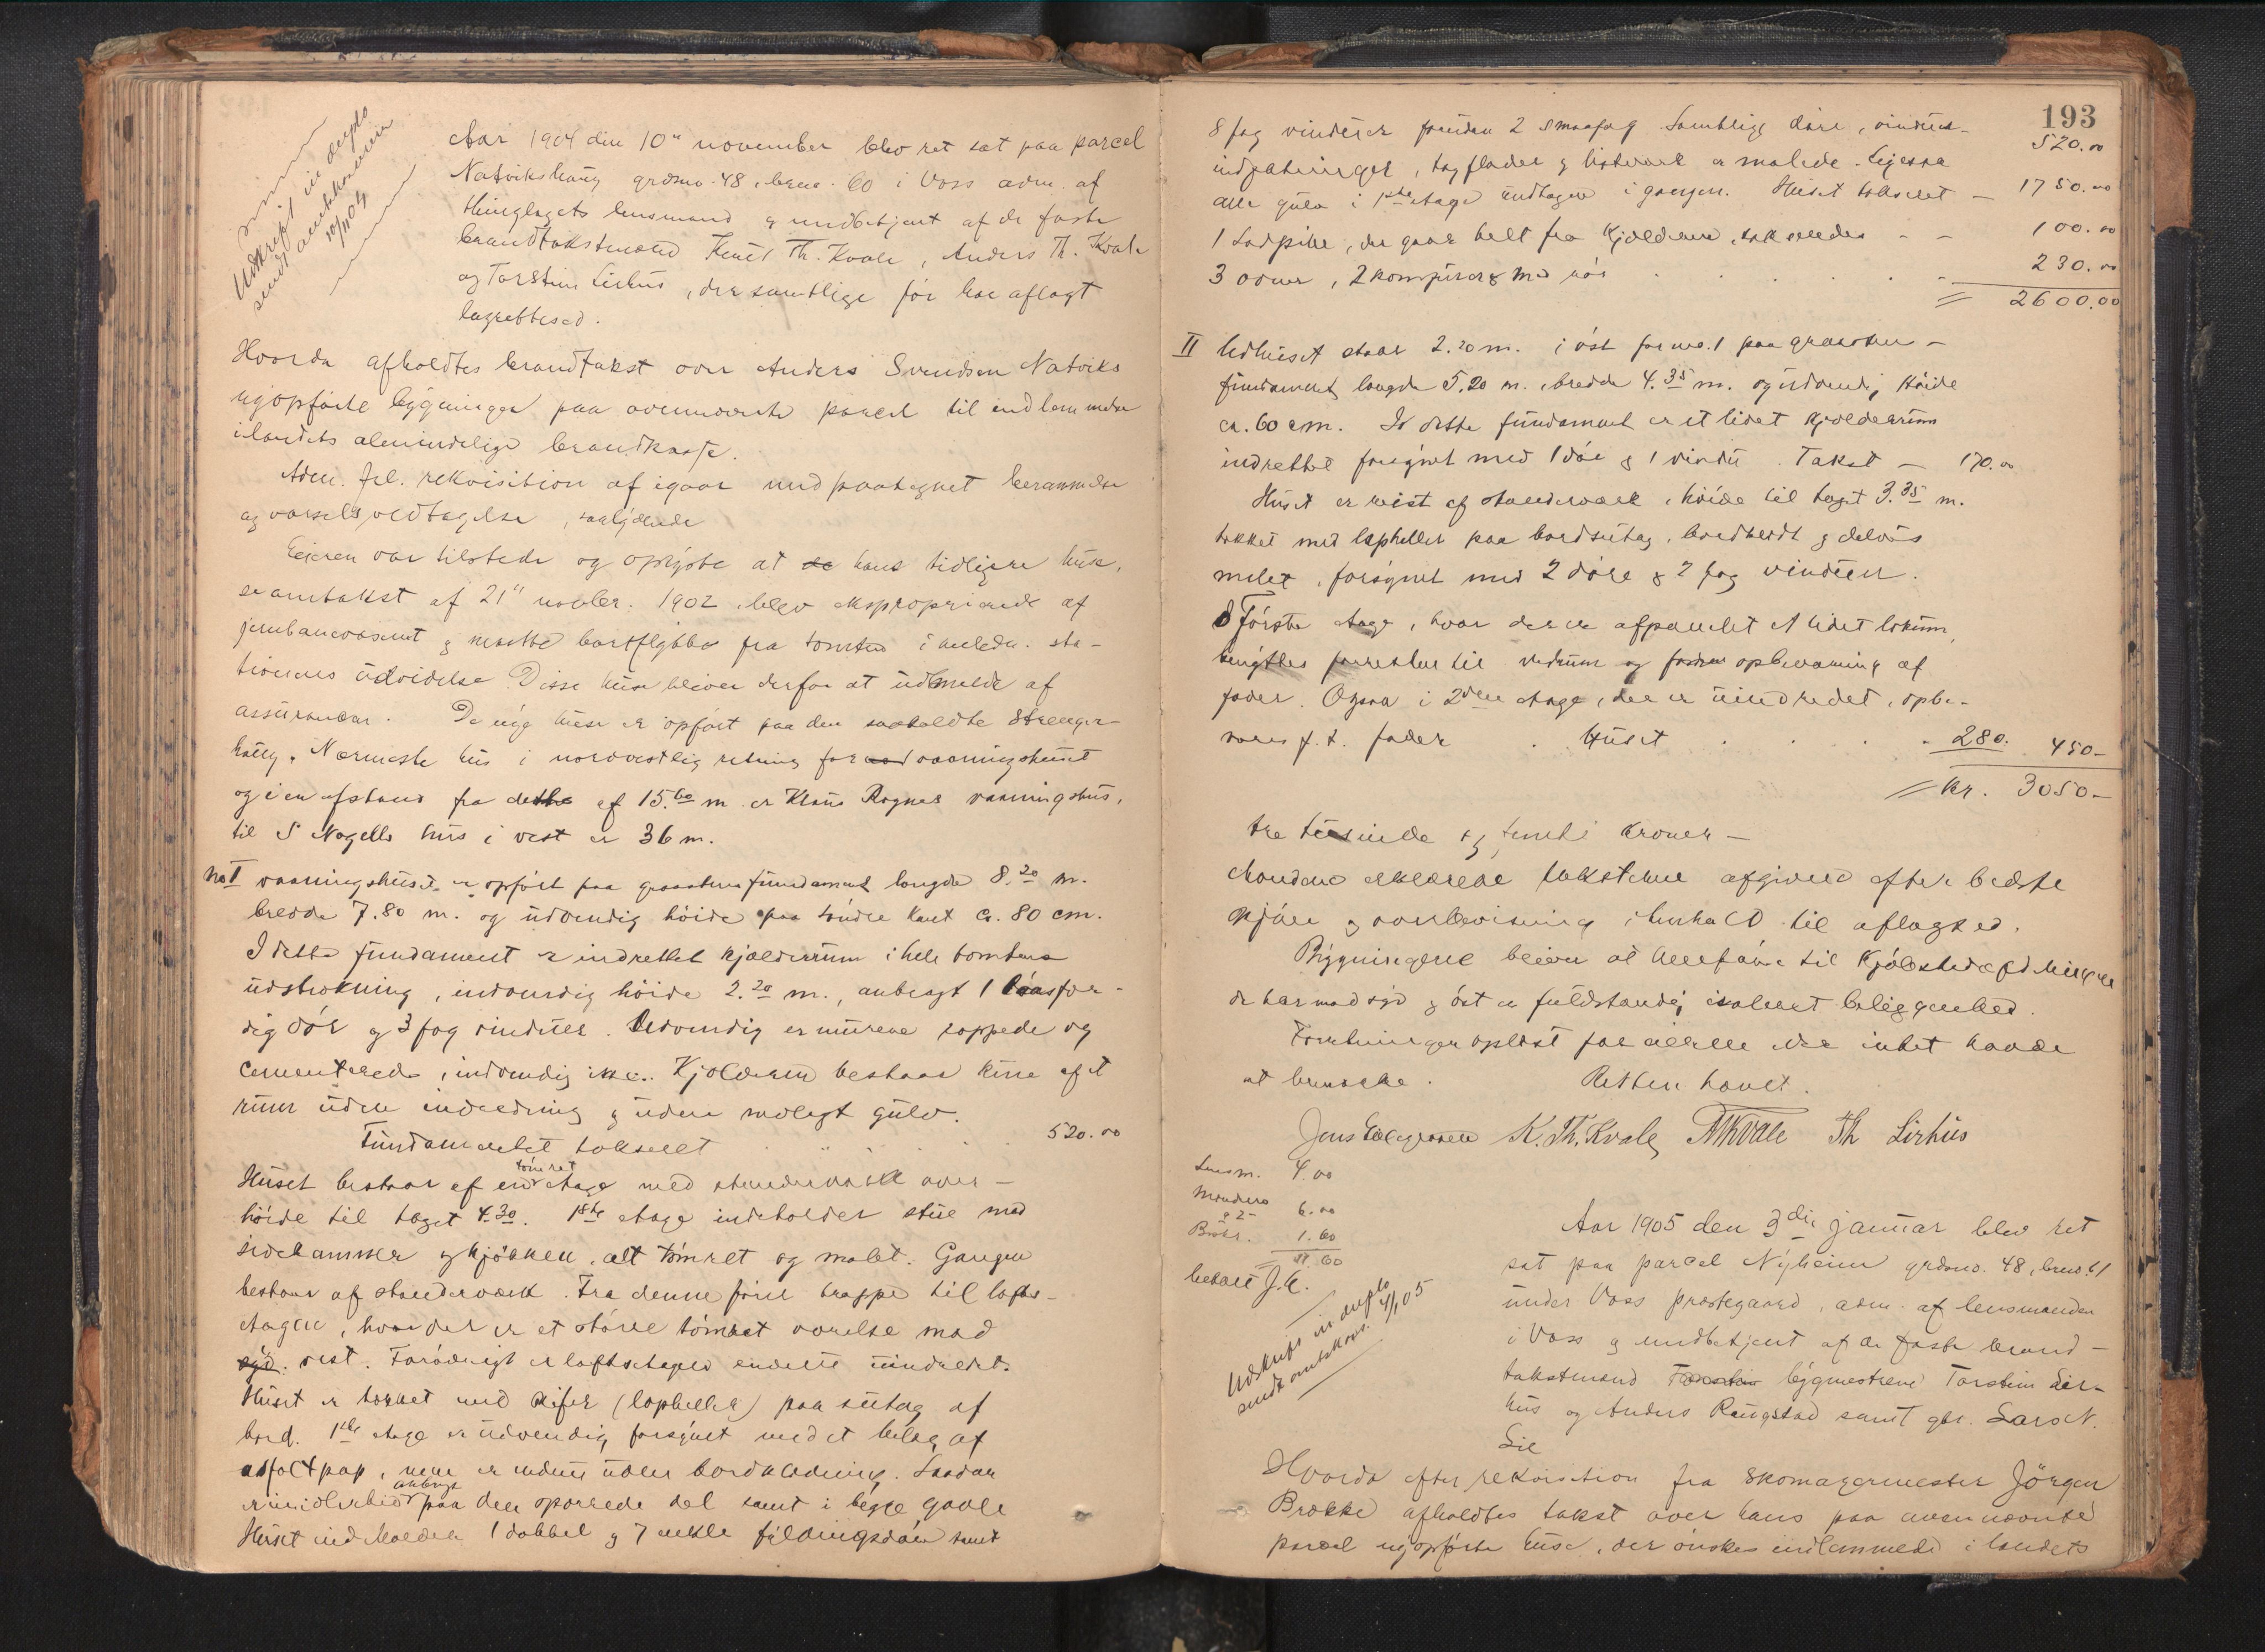 Udskrift in duplo
sendt amtskontoret
10/11 04
Aar 1904 den 10" november blev ret sat paa parcel
Natvikshaug grdsno. 48, brno. 60 i Voss adm. af
thinglagets lensmand og medbetjent af de faste
brandtakstmænd Knut Th. Kvale, Anders Th. Kvale
og Torstein Lirhus, der samtlige før har aflagt
lagrettesed.
Hvorda afholdtes brandtakst over Anders Svendsen Natviks
nyopførte bygninger paa ovennævnte parcel til indlemmelse
i landets almindelige brandkasse.
Adm. frl. rekvisition af igaar med paategnet berammelse
og varselsvedtagelse, saalydende
Eieren var tilstede og oplyste at de hans tidligere huse,
se omtakst af 21" novbr. 1902, blev eksproprierede af
jernbanevæsenet og maatte bortflyttes fra tomten i anledn. sta-
tionens udvidelse. Disse huse bliver derfor at udmelde af
assurancen. De nye huse er opført paa den saakaldte Strenger-
haug. Nærmeste hus i nordvestlig retning for vaaningshuset
og i en afstand fra dette af 15.60 m. er Klaus Rognes vaaningshus,
til S Nagells hus i vest er 36 m.
No I vaaningshuset er opført paa graastens fundament længde 8.20 m.
bredde 7.80 m. og udvendig høide paa søndre kant ca. 80 cm.
I dette fundament er indrettet kjælderrum i hele tomtens
udstrækning, indvendig høide 2.20 m., anbragt 1 laasfær-
dig dør og 3 fag vinduer. Udvendig er murene rappede og
cementerede, indvendig ikke. Kjælderen bestaar kun af et
rum uden indredning og uden molagt gulv.
Fundamentet takseret . . 520.00
Huset bestaar af en tømret etage med stenderværk over –
høide til taget 4.30. 1ste etage indeholder stue med
sidekammer og kjøkken, alt tømret og malet. Gangen
bestaar af stenderværk. Fra denne fører trappe til lofts-
etagen, hvor der er et større tømret værelse mod
syd. vest. Forøvrigt er loftsetagen endnu uindredet.
Huset er tækket med skifer (lapheller) paa sutag af
bord. 1ste etage er udvendig forsynet med et belag af
asfaltpap, men er endnu uden bordklædning. Saadan
er imidlertid anbragt paa den øverste del samt i begge gavle
Huset indeholder 1 dobbel og 7 enkle fyldingsdøre samt
193
8 fag vinduer foruden 2 smaafag Samtlige døre, vindus-
indfatninger, tagflader og listværk er malede. Ligesaa 520.00
alle gulv i 1ste etage undtagen i gangen. Huset takseret – 1750.00
1 Ladpibe, der gaar helt fra kjælderen, takseredes – – 100.00
3 ovner, 2 komfurer med rør . . . . – 230.00
= 2600.00
II Udhuset staar 2.20 m. i øst for no. 1 paa graasten –
fundament, længde 5.20 m. bredde 4.35 m. og udvendig høide
ca. 60 cm. I dette fundament er et lidet kjælderrum
indrettet forsynet med 1 dør og 1 vindu. Takst – 170.00
Huset er reist af stenderværk, høide til taget 3.35 m.
tækket med lapheller paa bordsutag, bordklædt og delvis
malet, forsynet med 2 døre og 2 fag vinduer.
I Første etage, hvor der er afpanelet et lidet lokum,
benyttes forresten til vedrum og opbevaring af
foder. Ogsaa i 2den etage, der er uindredet, opbe-
vares f. t. foder . Huset . . . . 280. 450–
= kr. 3050–
tre tusinde og femti kroner –
Mændene erklærede taksterne afgivne efter bedste
skjøn og overbevisning i henhold til aflagt ed.
Bygningerne bliver at henføre til kjøbsteder
de har mod syd og øst en fuldstændig isoleret beliggenhed.
Forretningen oplæst for eieren der intet havde
at bemærke. Retten hævet.
K. Th. Kvale AThKvale Th Lirhus
Lensm. 4.00
Mændene
a 2– 6.00
1.60
11.60
betalt J.E.
Udskrift in duplo
sendt amtskont. 4/1 05
Aar 1905 den 3die januar blev ret
sat paa parcel Nyheim grdsno. 48, brno 61
under Voss præstegaard, adm. af lensmanden
i Voss og medbetjent af de faste brand-
takstmænd Torstein bygmestrene Torstein Lir-
hus og Anders Rengstad samt gbr. Lars N.
Lie
Hvorda efter rekvisition fra skomagermester Jörgen
Brække afholdtes takst over hans paa ovennævnte
parcel nyopførte huse, der ønskes indlemmede i landets